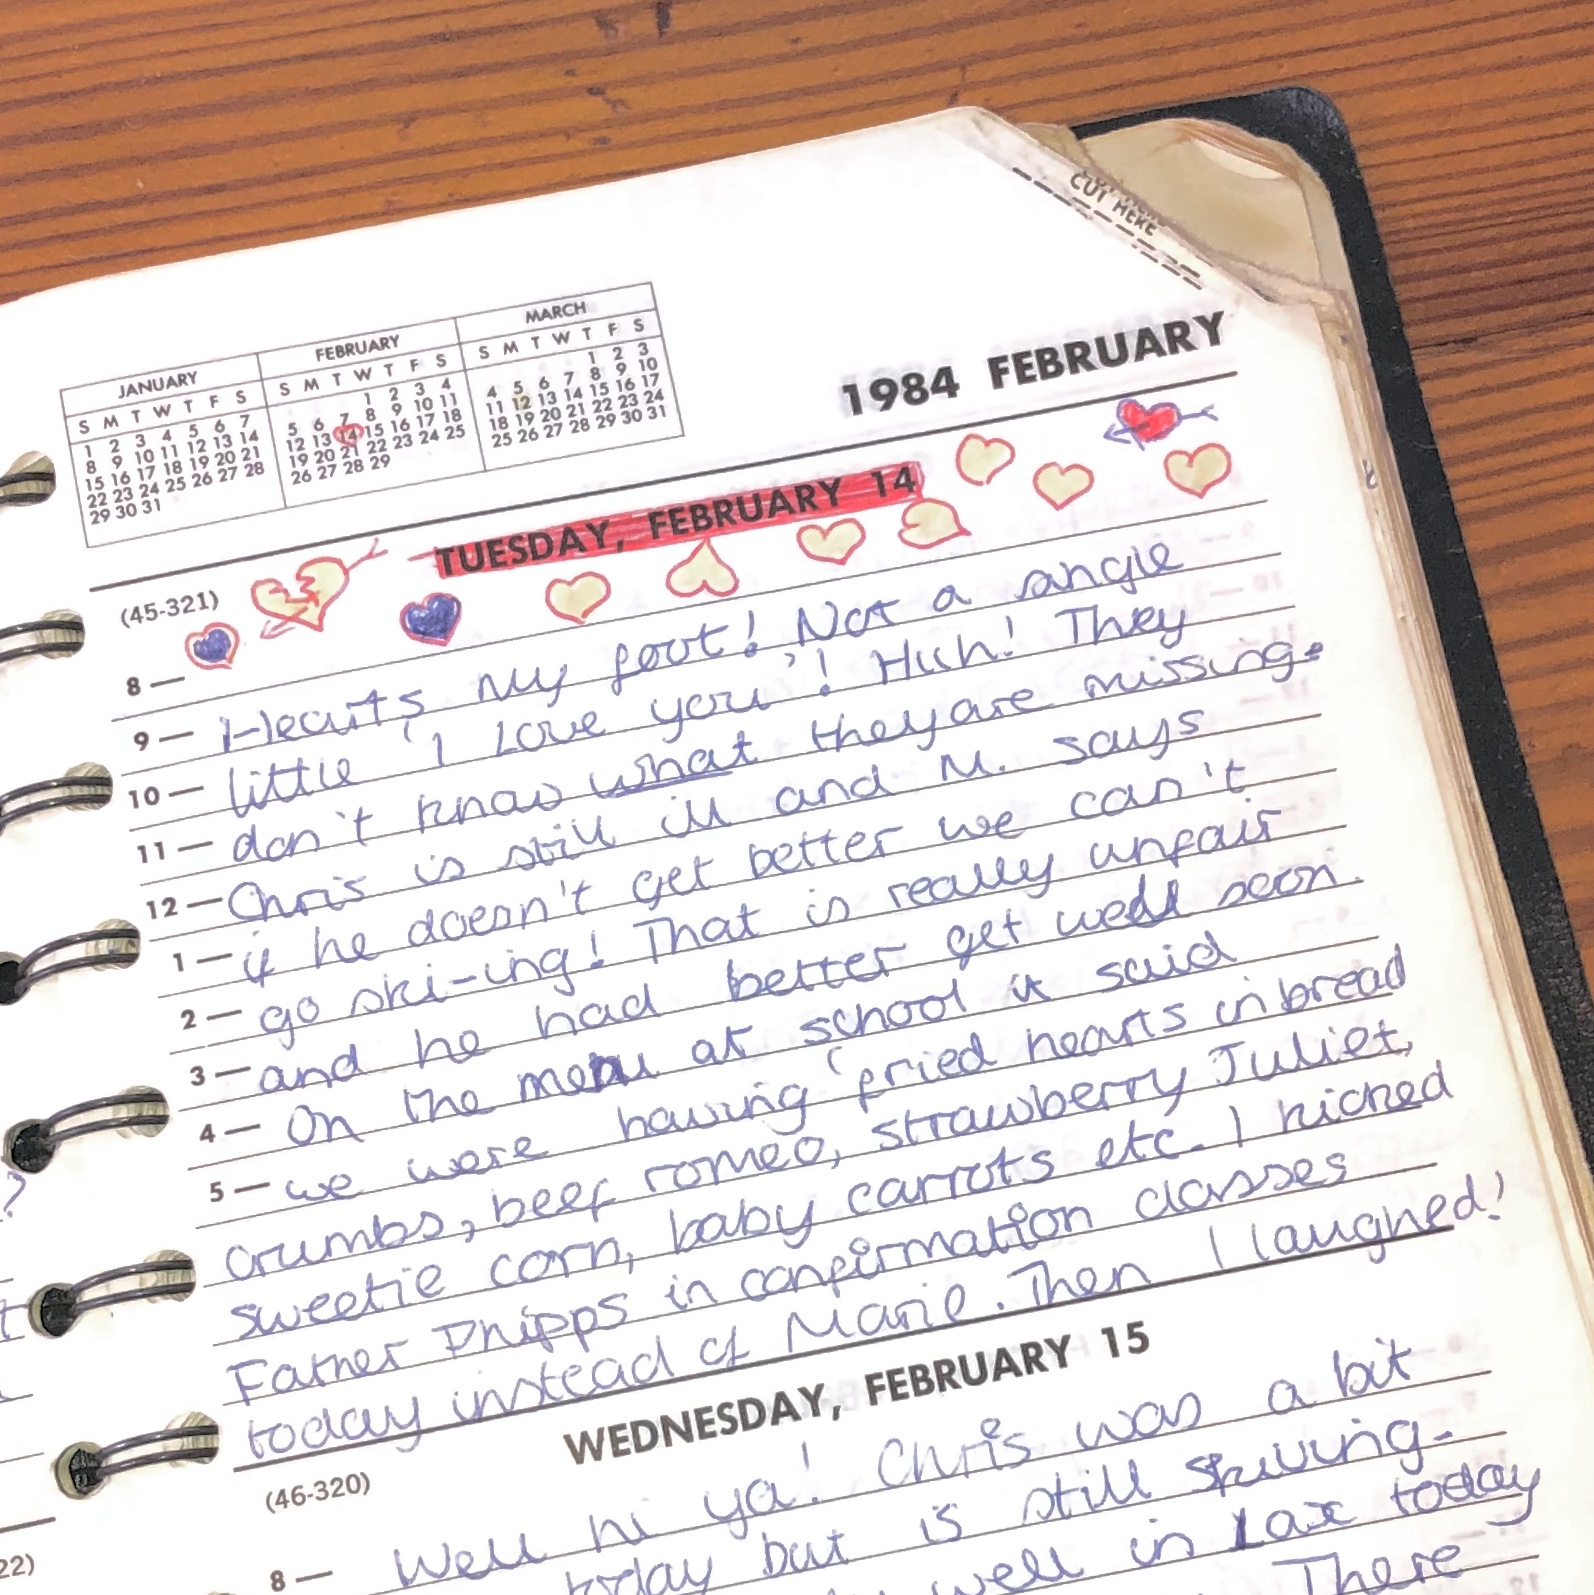 CUT HERE
JANUARY FEBRUARY MARCH
S M T W T F S S M T W T F S S M T W T F S
1 2 3 4 5 6 7 1 2 3 4 1 2 3
8 9 10 11 12 13 14 5 6 7 8 9 10 11 4 5 6 7 8 9 10
15 16 17 18 19 20 21 12 13 14 15 16 17 18 11 12 13 14 15 16 17
22 23 24 25 26 27 28 19 20 21 22 23 24 25 18 19 20 21 22 23 24
29 30 31 26 27 28 29 25 26 27 28 29 30 31
1984 FEBRUARY
TUESDAY, FEBRUARY 14
(45-321)
8 —
9 — Hearts my foot! Not a sangle
10 — little 'I Love you'! Huh! They
11 — don't know what they are missing.
12 — Chris is still ill and M. says
1 — if he doesn't get better we can't
2 — go ski-ing! That is really unfair
3 — and he had better get well soon.
4 — On the menu at school it said
5 — we were having 'fried hearts in bread
crumbs, beef romeo, strawberry Juliet,
sweetie corn, baby carrots etc. I kicked
Father Phipps in confirmation classes
today instead of Marie. Then I laughed!
WEDNESDAY, FEBRUARY 15
(46-320)
8 — Well hi ya! Chris was a bit
today but is still skiving.
well in Lax today
There
?
22)